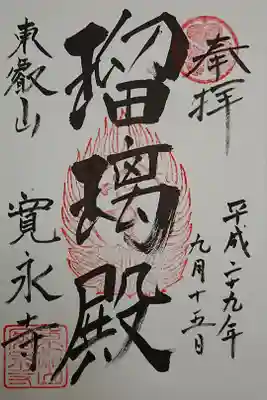 奉拝
平成二十九年
九月十五日
瑠璃殿
東叡山
寛永寺